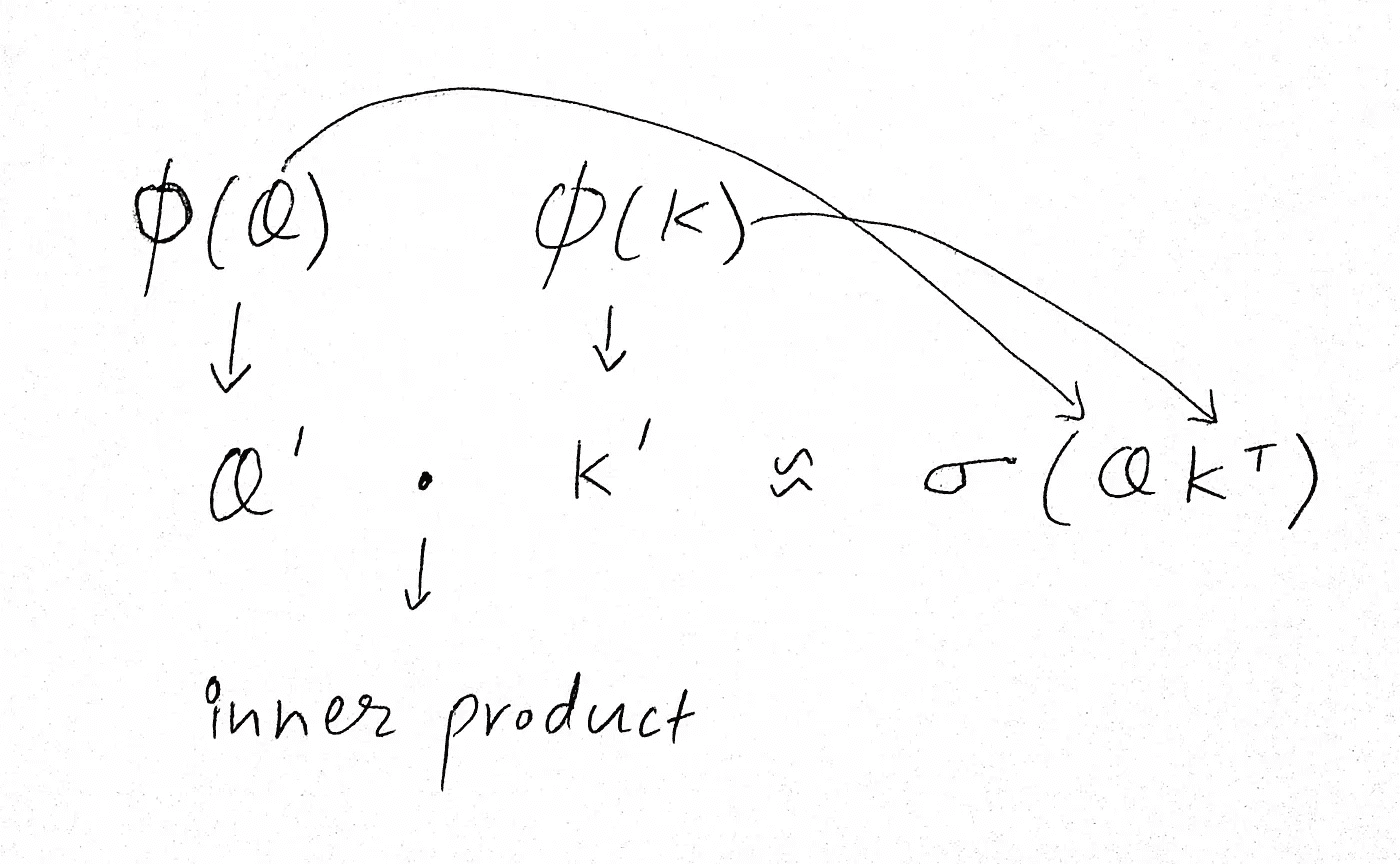 ϕ(Q) ϕ(K)
↓ ↓
Q' · K' ≈ σ(QKᵀ)
↓
inner product